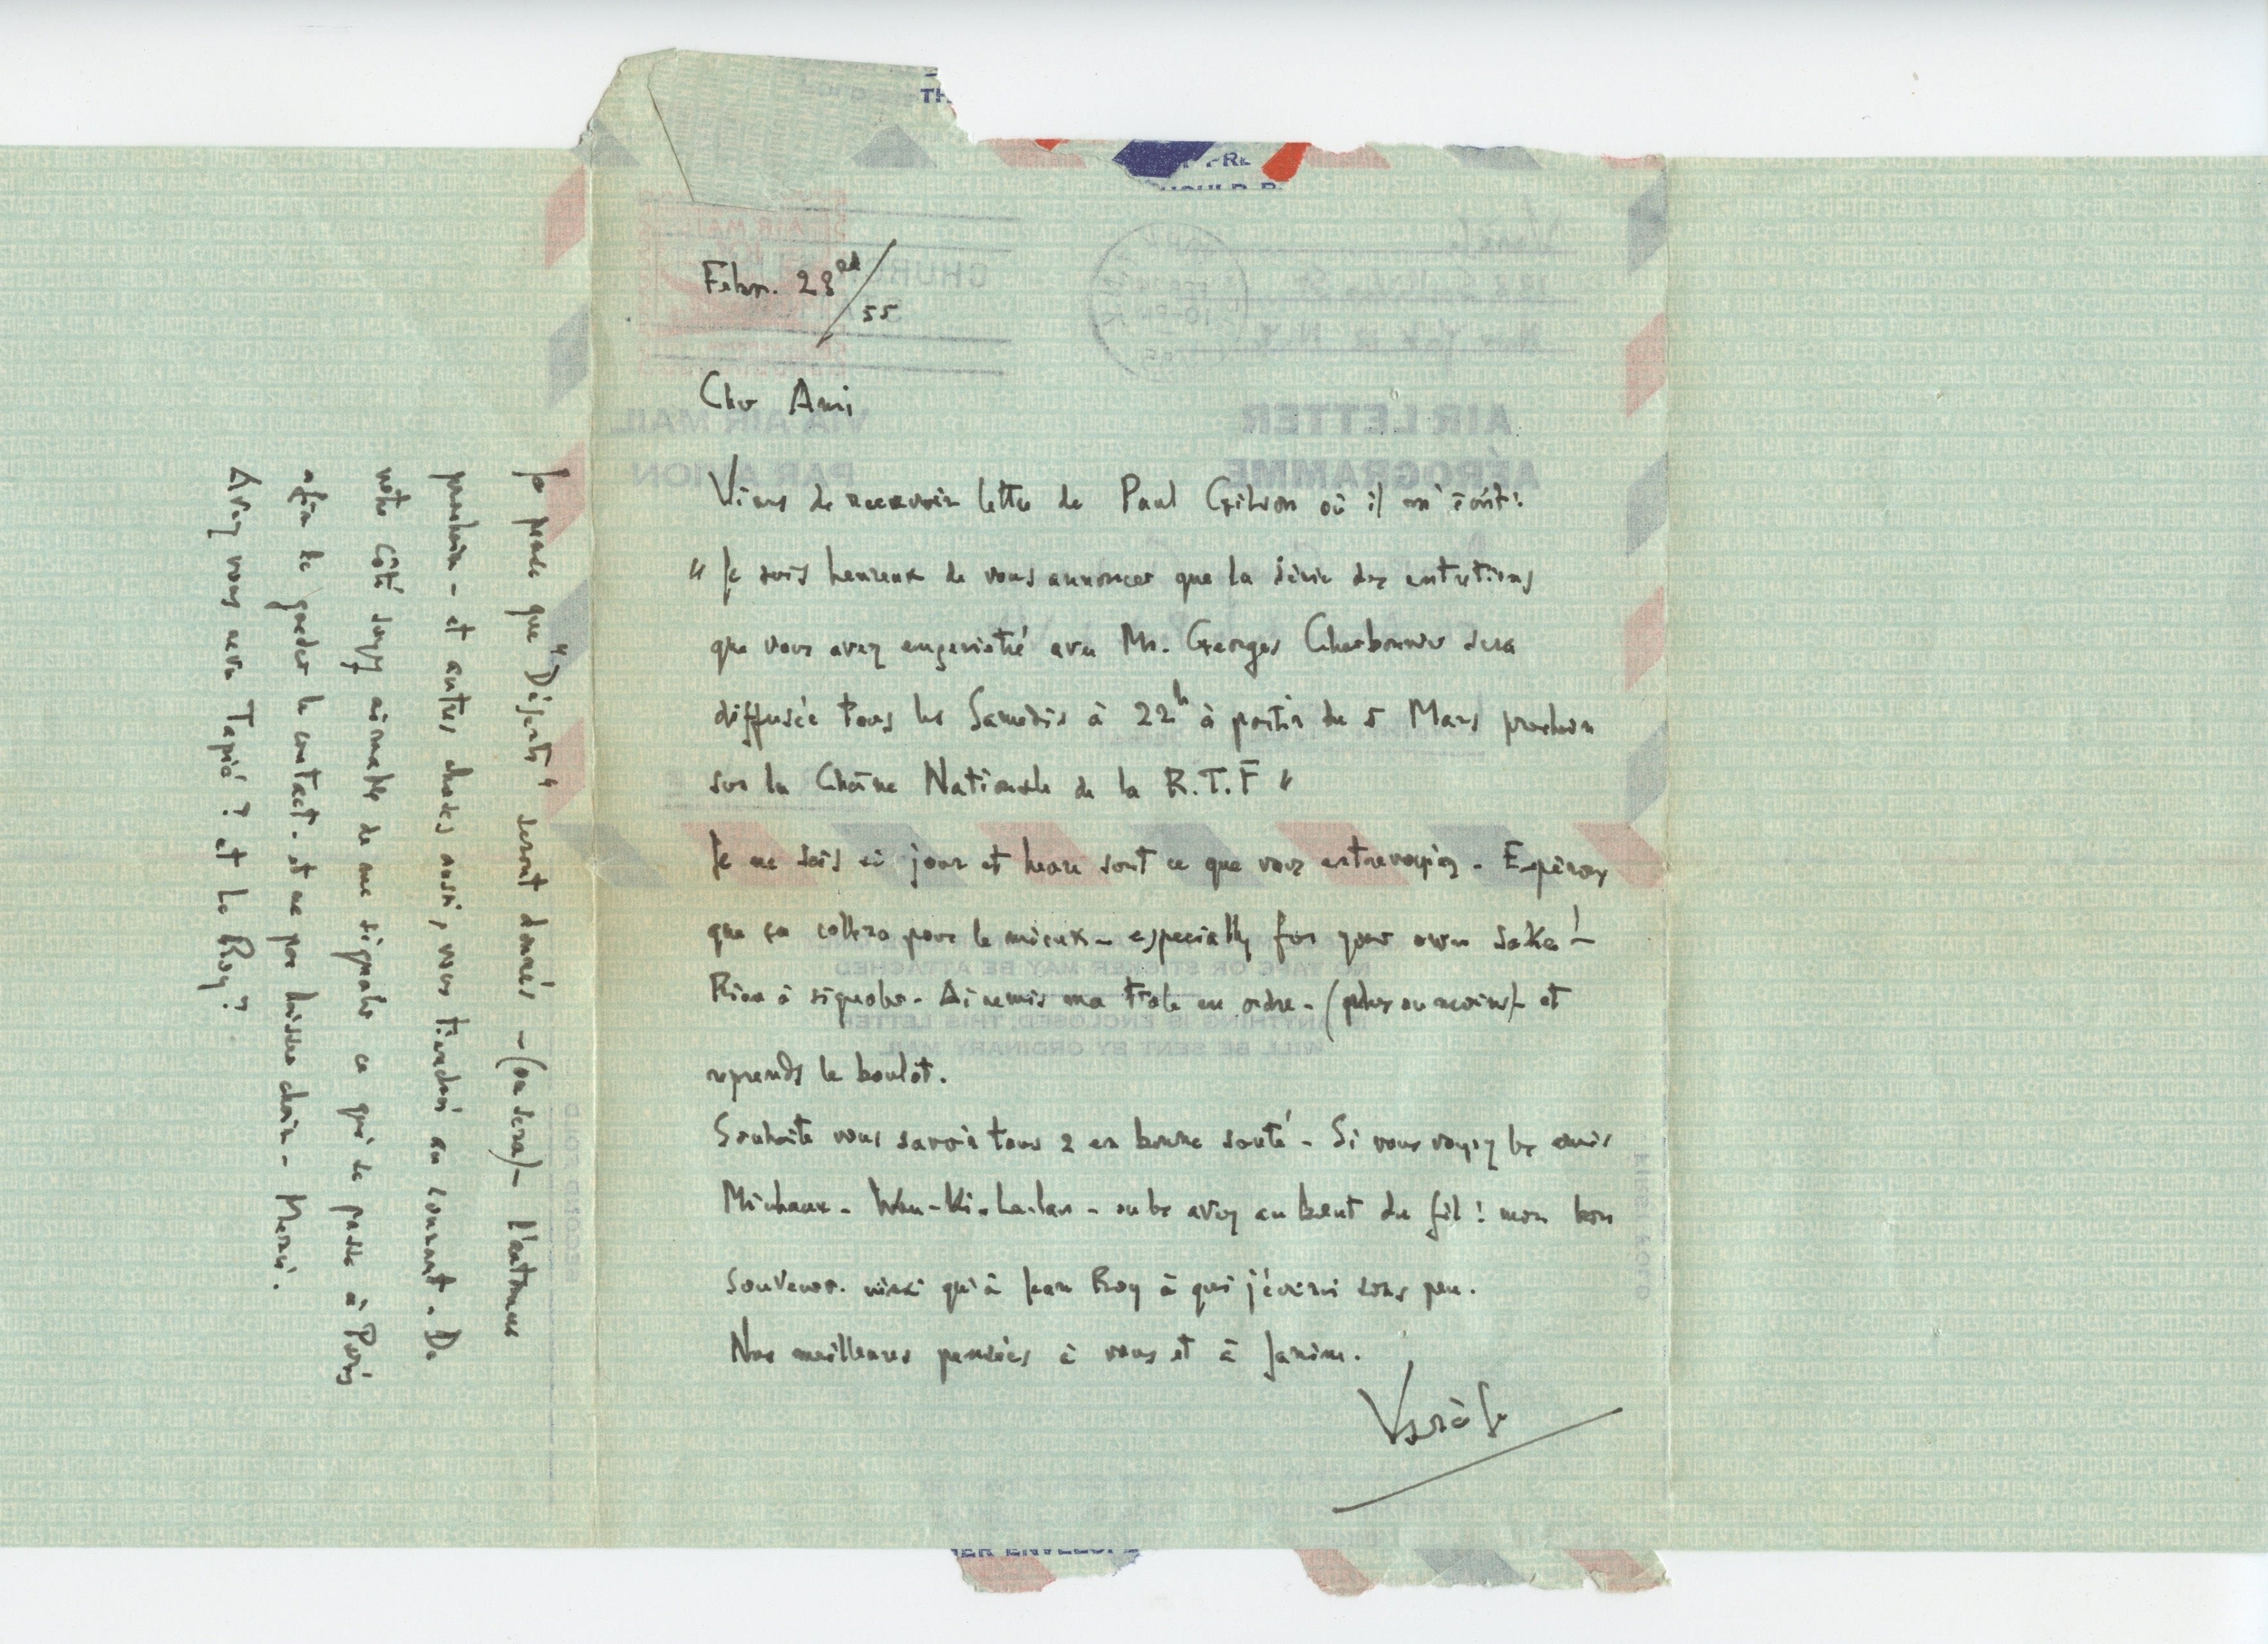 Febr. 28nd/55
Cher Ami
Viens de recevoir lettre de Paul Gilson où il m'écrit:
" Je suis heureux de vous annoncer que la série des entretiens
que vous avez enregistré avec Mr. Georges Charbonnier sera
diffusée tous les Samedis à 22h à partir du 5 Mars prochain
sur la Chaîne Nationale de la R.T.F "
Je ne sais si jour et heure sont ce que vous entrevoyiez - Espérons
que ça collera pour le mieux - especially for your own sake! -
Rien à signaler - Ai remis ma tôle en ordre - (plus ou moins) - et
reprends le boulot.
Souhaite vous savoir tous 2 en bonne santé - Si vous voyez les amis
Michaux - Wou-Ki - Lalan - ou les avez au bout du fil : mon bon
Souvenir. ainsi qu'à Jean Roy à qui j'écrirai sous peu.
Nos meilleures pensées à vous et à Janine.
Varèse
Je pense que "Déserts" seront donnés - (ou sera) - l'automne
prochain - et autres choses aussi, vous tiendrai au courant. De
votre côté soyez aimable de me signaler ce qui se passe à Paris
afin de garder le contact - et ne pas laisser choir - Merci.
Avez vous revu Tapié ? et Le Roy ?
AIR LETTER
AÉROGRAMME
VIA AIR MAIL
PAR AVION
NO TAPE OR STICKER MAY BE ATTACHED
IF ANYTHING IS ENCLOSED, THIS LETTER
WILL BE SENT BY ORDINARY MAIL